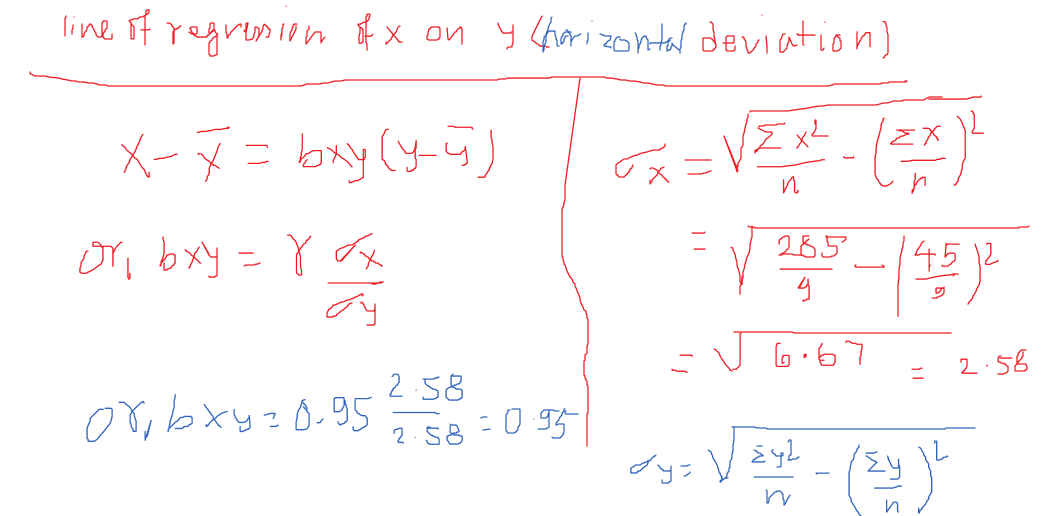 line of regression of x on y (horizontal deviation)
x - x̄ = bxy (y - ȳ)
or, bxy = r σx/σy
or, bxy = 0.95 2.58/2.58 = 0.95
σx = √(Σx²/n - (Σx/n)²)
= √(285/9 - (45/9)²)
= √6.67 = 2.58
σy = √(Σy²/n - (Σy/n)²)